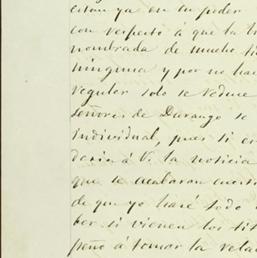 están ya en su poder
con respecto á que la tr
nombrada de mucho ti
ninguna y por no hac
regular solo se reduce
señores de Durango se
individual, pues si en
daria á V. la noticia
que se acabaran cuest
de que yo haré todo
ber si vienen los tit
peño á tomar la rela